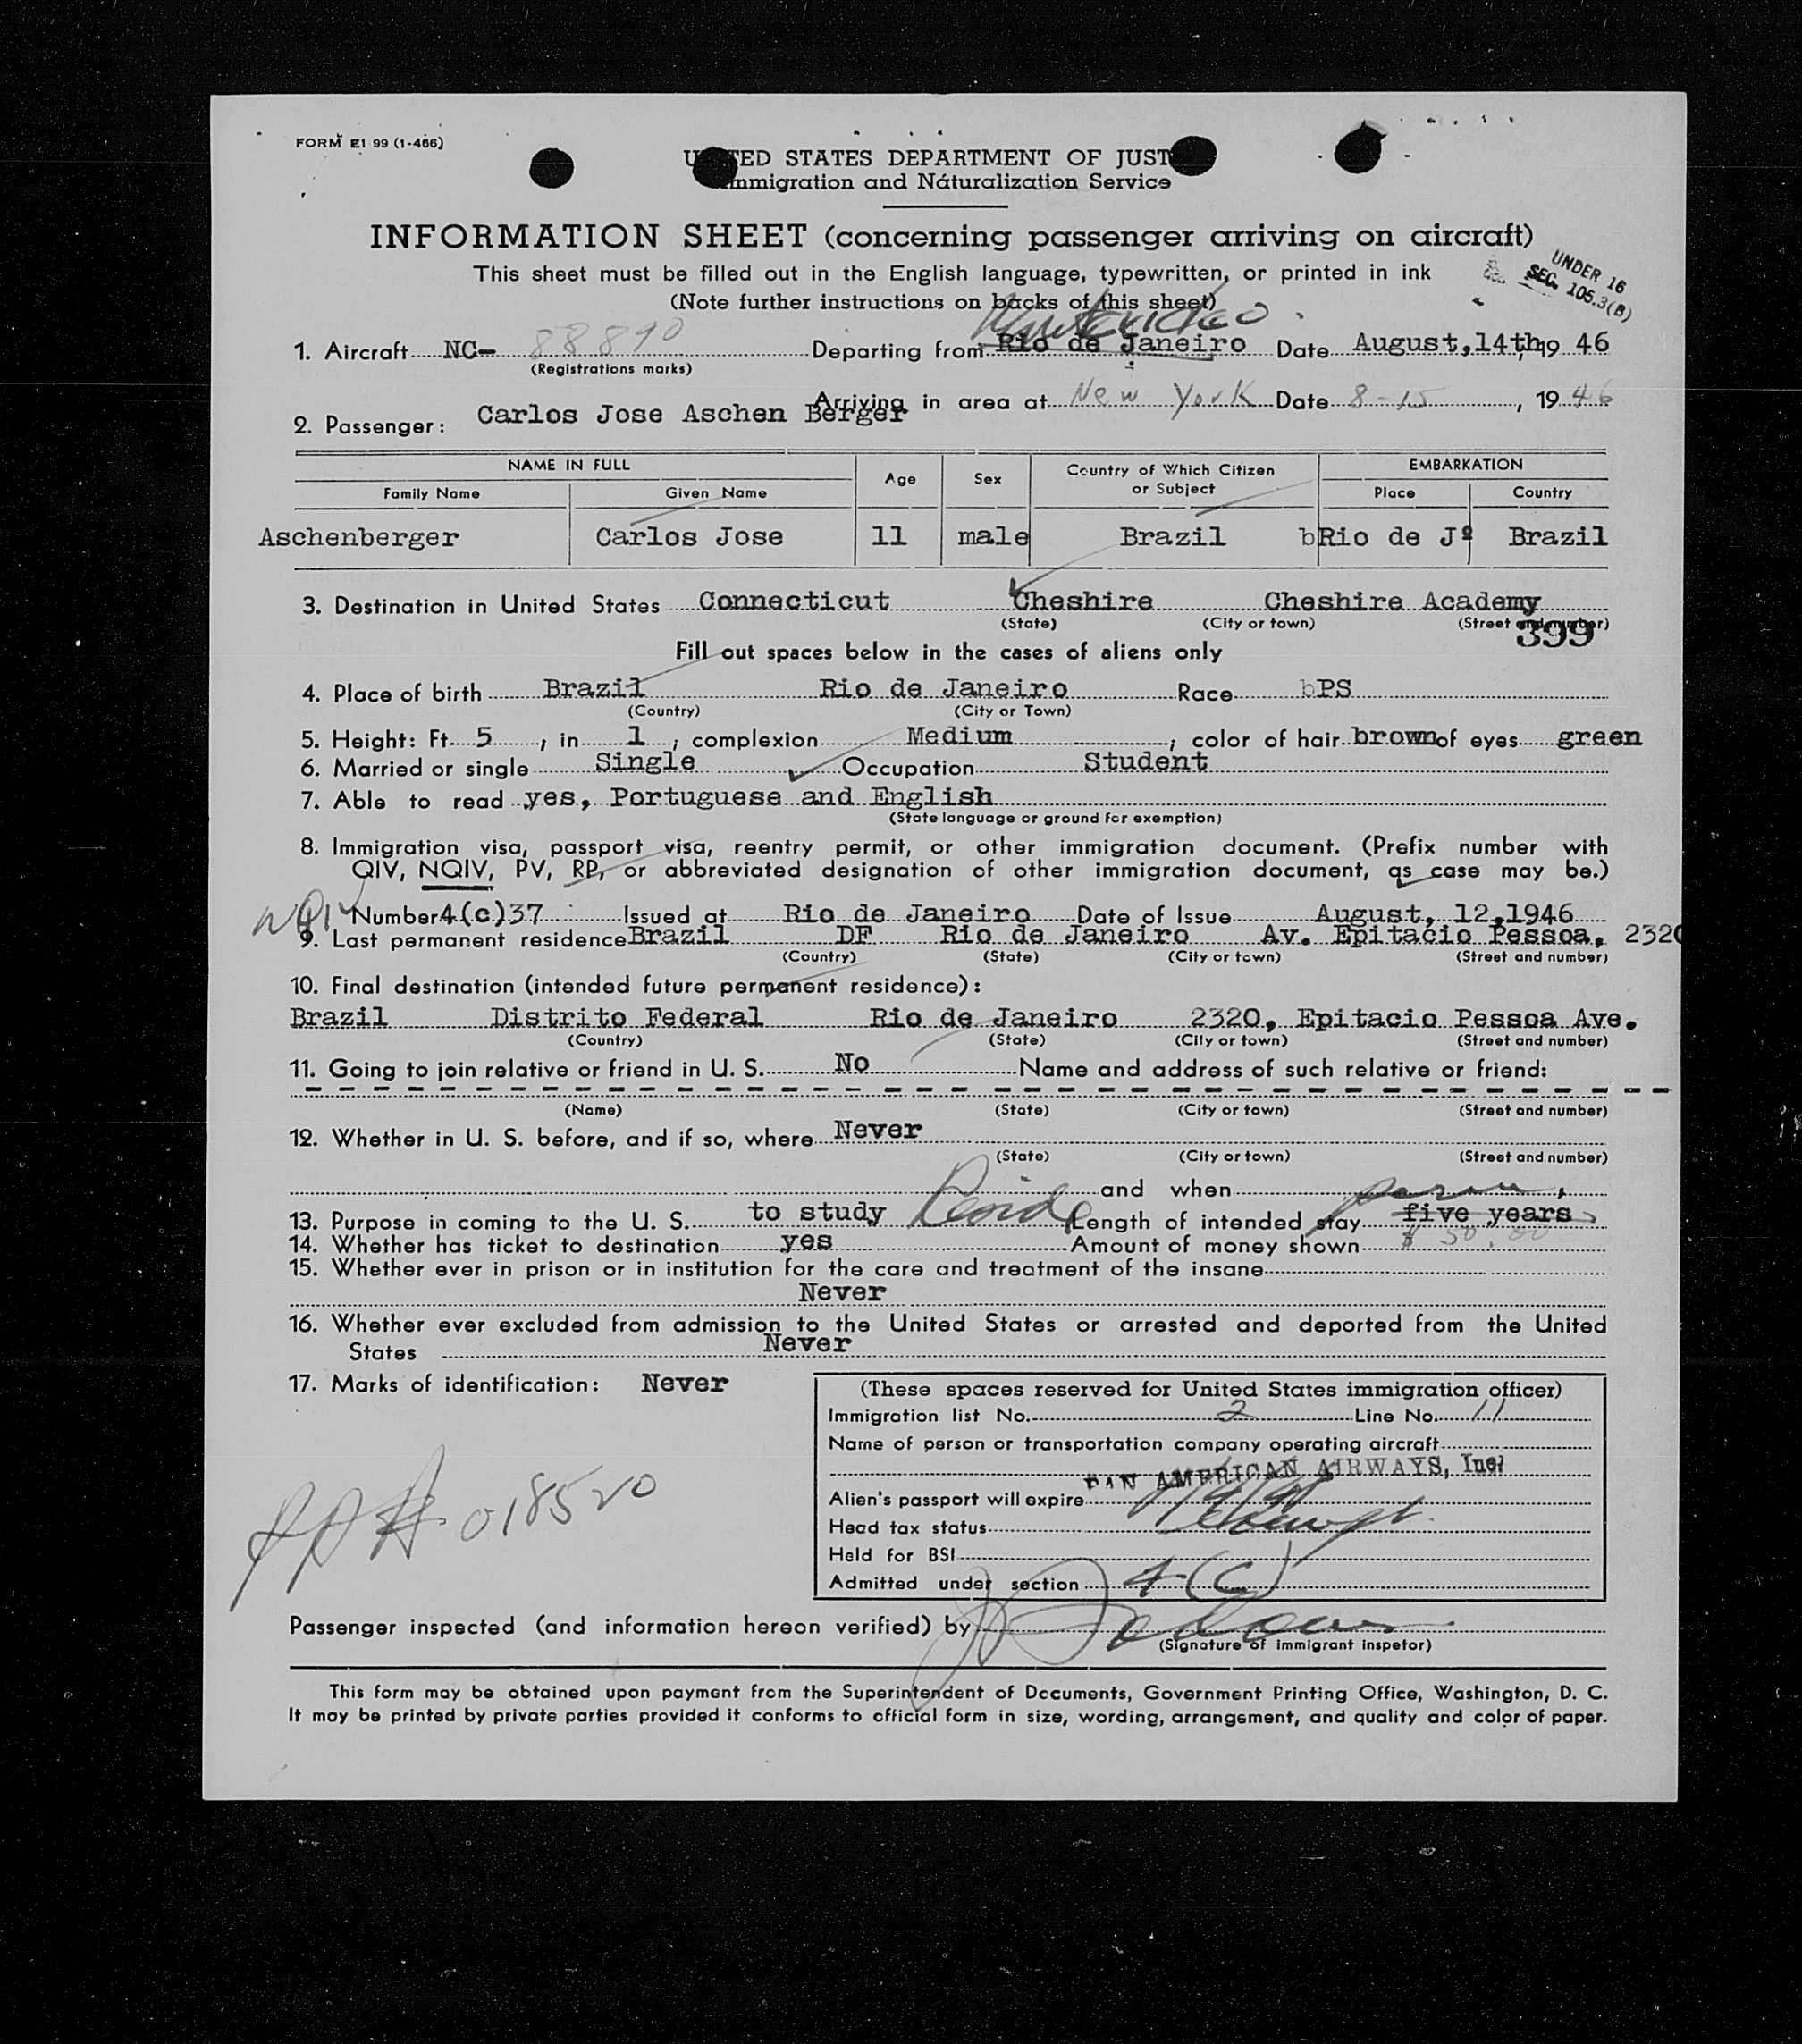 FORM E1 99 (1-466)
UNITED STATES DEPARTMENT OF JUST
Immigration and Naturalization Service
INFORMATION SHEET (concerning passenger arriving on aircraft)
This sheet must be filled out in the English language, typewritten, or printed in ink
(Note further instructions on backs of this sheet)
UNDER 16
SEC. 105.3(B)
Montevideo
1. Aircraft NC- 88890 Departing from Rio de Janeiro Date August, 14th, 19 46
(Registrations marks)
Arriving in area at New York Date 8-15, 19 46
2. Passenger: Carlos Jose Aschen Berger
NAME IN FULL Age Sex Country of Which Citizen or Subject EMBARKATION
Family Name Given Name Place Country
Aschenberger Carlos Jose 11 male Brazil bRio de Jº Brazil
3. Destination in United States Connecticut Cheshire Cheshire Academy
(State) (City or town) (Street and number)
399
Fill out spaces below in the cases of aliens only
4. Place of birth Brazil Rio de Janeiro Race bPS
(Country) (City or Town)
5. Height: Ft. 5, in 1; complexion Medium; color of hair brown of eyes green
6. Married or single Single Occupation Student
7. Able to read yes, Portuguese and English
(State language or ground for exemption)
8. Immigration visa, passport visa, reentry permit, or other immigration document. (Prefix number with
QIV, NQIV, PV, RP, or abbreviated designation of other immigration document, as case may be.)
NQIV Number 4(c)37 Issued at Rio de Janeiro Date of Issue August, 12,1946
9. Last permanent residence Brazil DF Rio de Janeiro Av. Epitacio Pessoa, 2320
(Country) (State) (City or town) (Street and number)
10. Final destination (intended future permanent residence):
Brazil Distrito Federal Rio de Janeiro 2320, Epitacio Pessoa Ave.
(Country) (State) (City or town) (Street and number)
11. Going to join relative or friend in U. S. No Name and address of such relative or friend:
(Name) (State) (City or town) (Street and number)
12. Whether in U. S. before, and if so, where Never
(State) (City or town) (Street and number)
and when
13. Purpose in coming to the U. S. to study Reside Length of intended stay five years
14. Whether has ticket to destination yes Amount of money shown $ 50.00
15. Whether ever in prison or in institution for the care and treatment of the insane
Never
16. Whether ever excluded from admission to the United States or arrested and deported from the United
States Never
17. Marks of identification: Never
(These spaces reserved for United States immigration officer)
Immigration list No. 2 Line No. 11
Name of person or transportation company operating aircraft
PAN AMERICAN AIRWAYS, Inc.
Alien's passport will expire
Head tax status
Held for BSI
Admitted under section 4(C)
018520
Passenger inspected (and information hereon verified) by
(Signature of immigrant inspetor)
This form may be obtained upon payment from the Superintendent of Documents, Government Printing Office, Washington, D. C.
It may be printed by private parties provided it conforms to official form in size, wording, arrangement, and quality and color of paper.